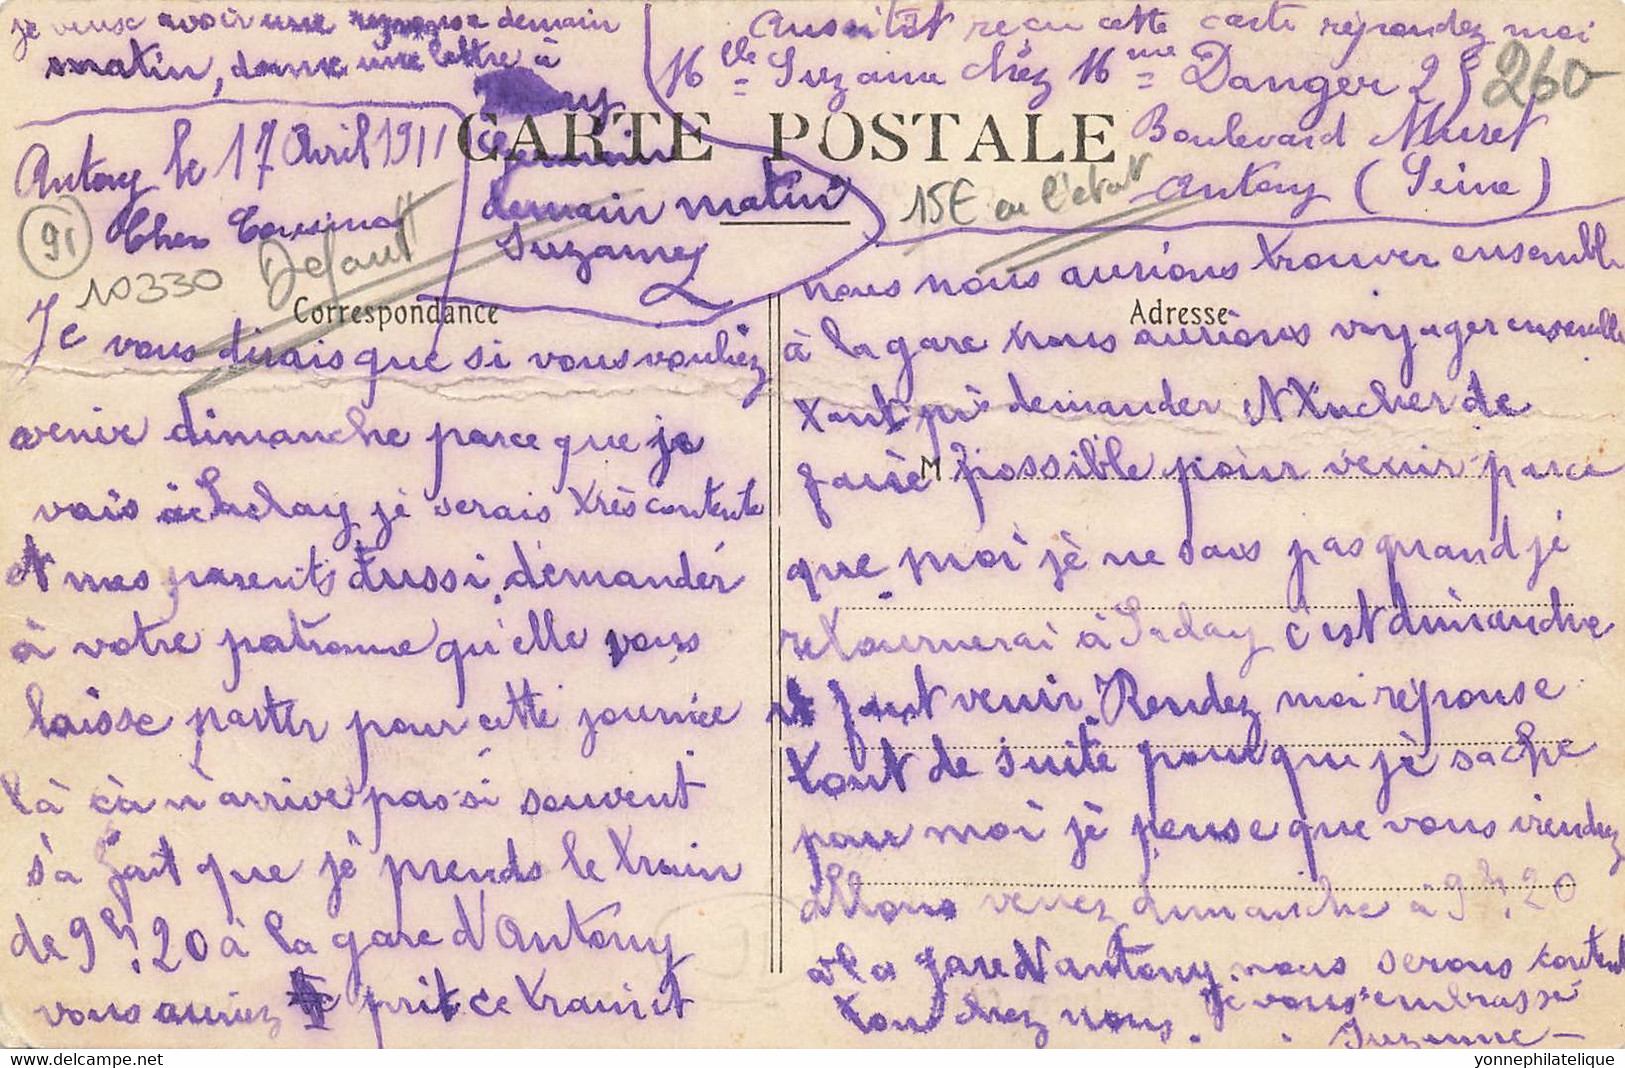 je veux avoir une reponse demain
matin, donne une lettre à
demain matin
Suzanne
Aussitôt reçu cette carte répondez moi
Mlle Suzanne chez Mme Danger 25
Boulevard Muret
Antony (Seine)
260
CARTE POSTALE
15€ en l'état
Antony le 17 Avril 1911
Cher Cousin
91
10330
Defaut
Correspondance
Je vous dirais que si vous vouliez
venir dimanche parce que je
vais à Saclay je serais très contente
mes parents aussi, demander
à votre patronne qu'elle vous
laisse partir pour cette journée
là ça n'arrive pas si souvent
s'a fait que je prends le train
de 9h.20 à la gare d'Antony
vous auriez prit ce train et
Adresse
nous nous aurions trouver ensemble
à la gare nous aurions voyager ensemble
demander de
faire possible pour venir parce
M
que moi je ne sais pas quand je
retournerai à Saclay c'est dimanche
faut venir. Rendez moi réponse
tout de suite pour que je sache
pour moi je pense que vous viendez
allons venez dimanche à 9h.20
à la gare d'antony. nous serons content
tou chez nous. Je vous embrasse
Suzanne
yonnephilatelique